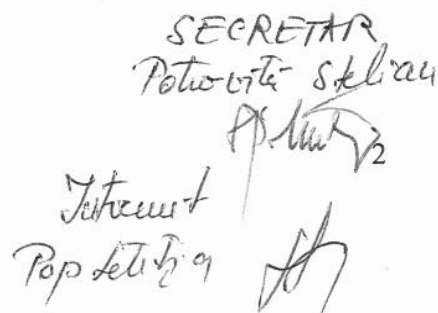 SECRETAR
Potrovită Stelian
2
Intocmit
Pop Letiția